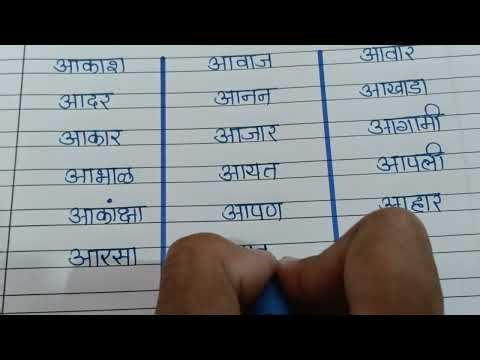 आकाश आवाज आवार
आदर आनन आखाडा
आकार आजार आगामी
आभाळ आयत आपली
आकांक्षा आपण आहार
आरसा